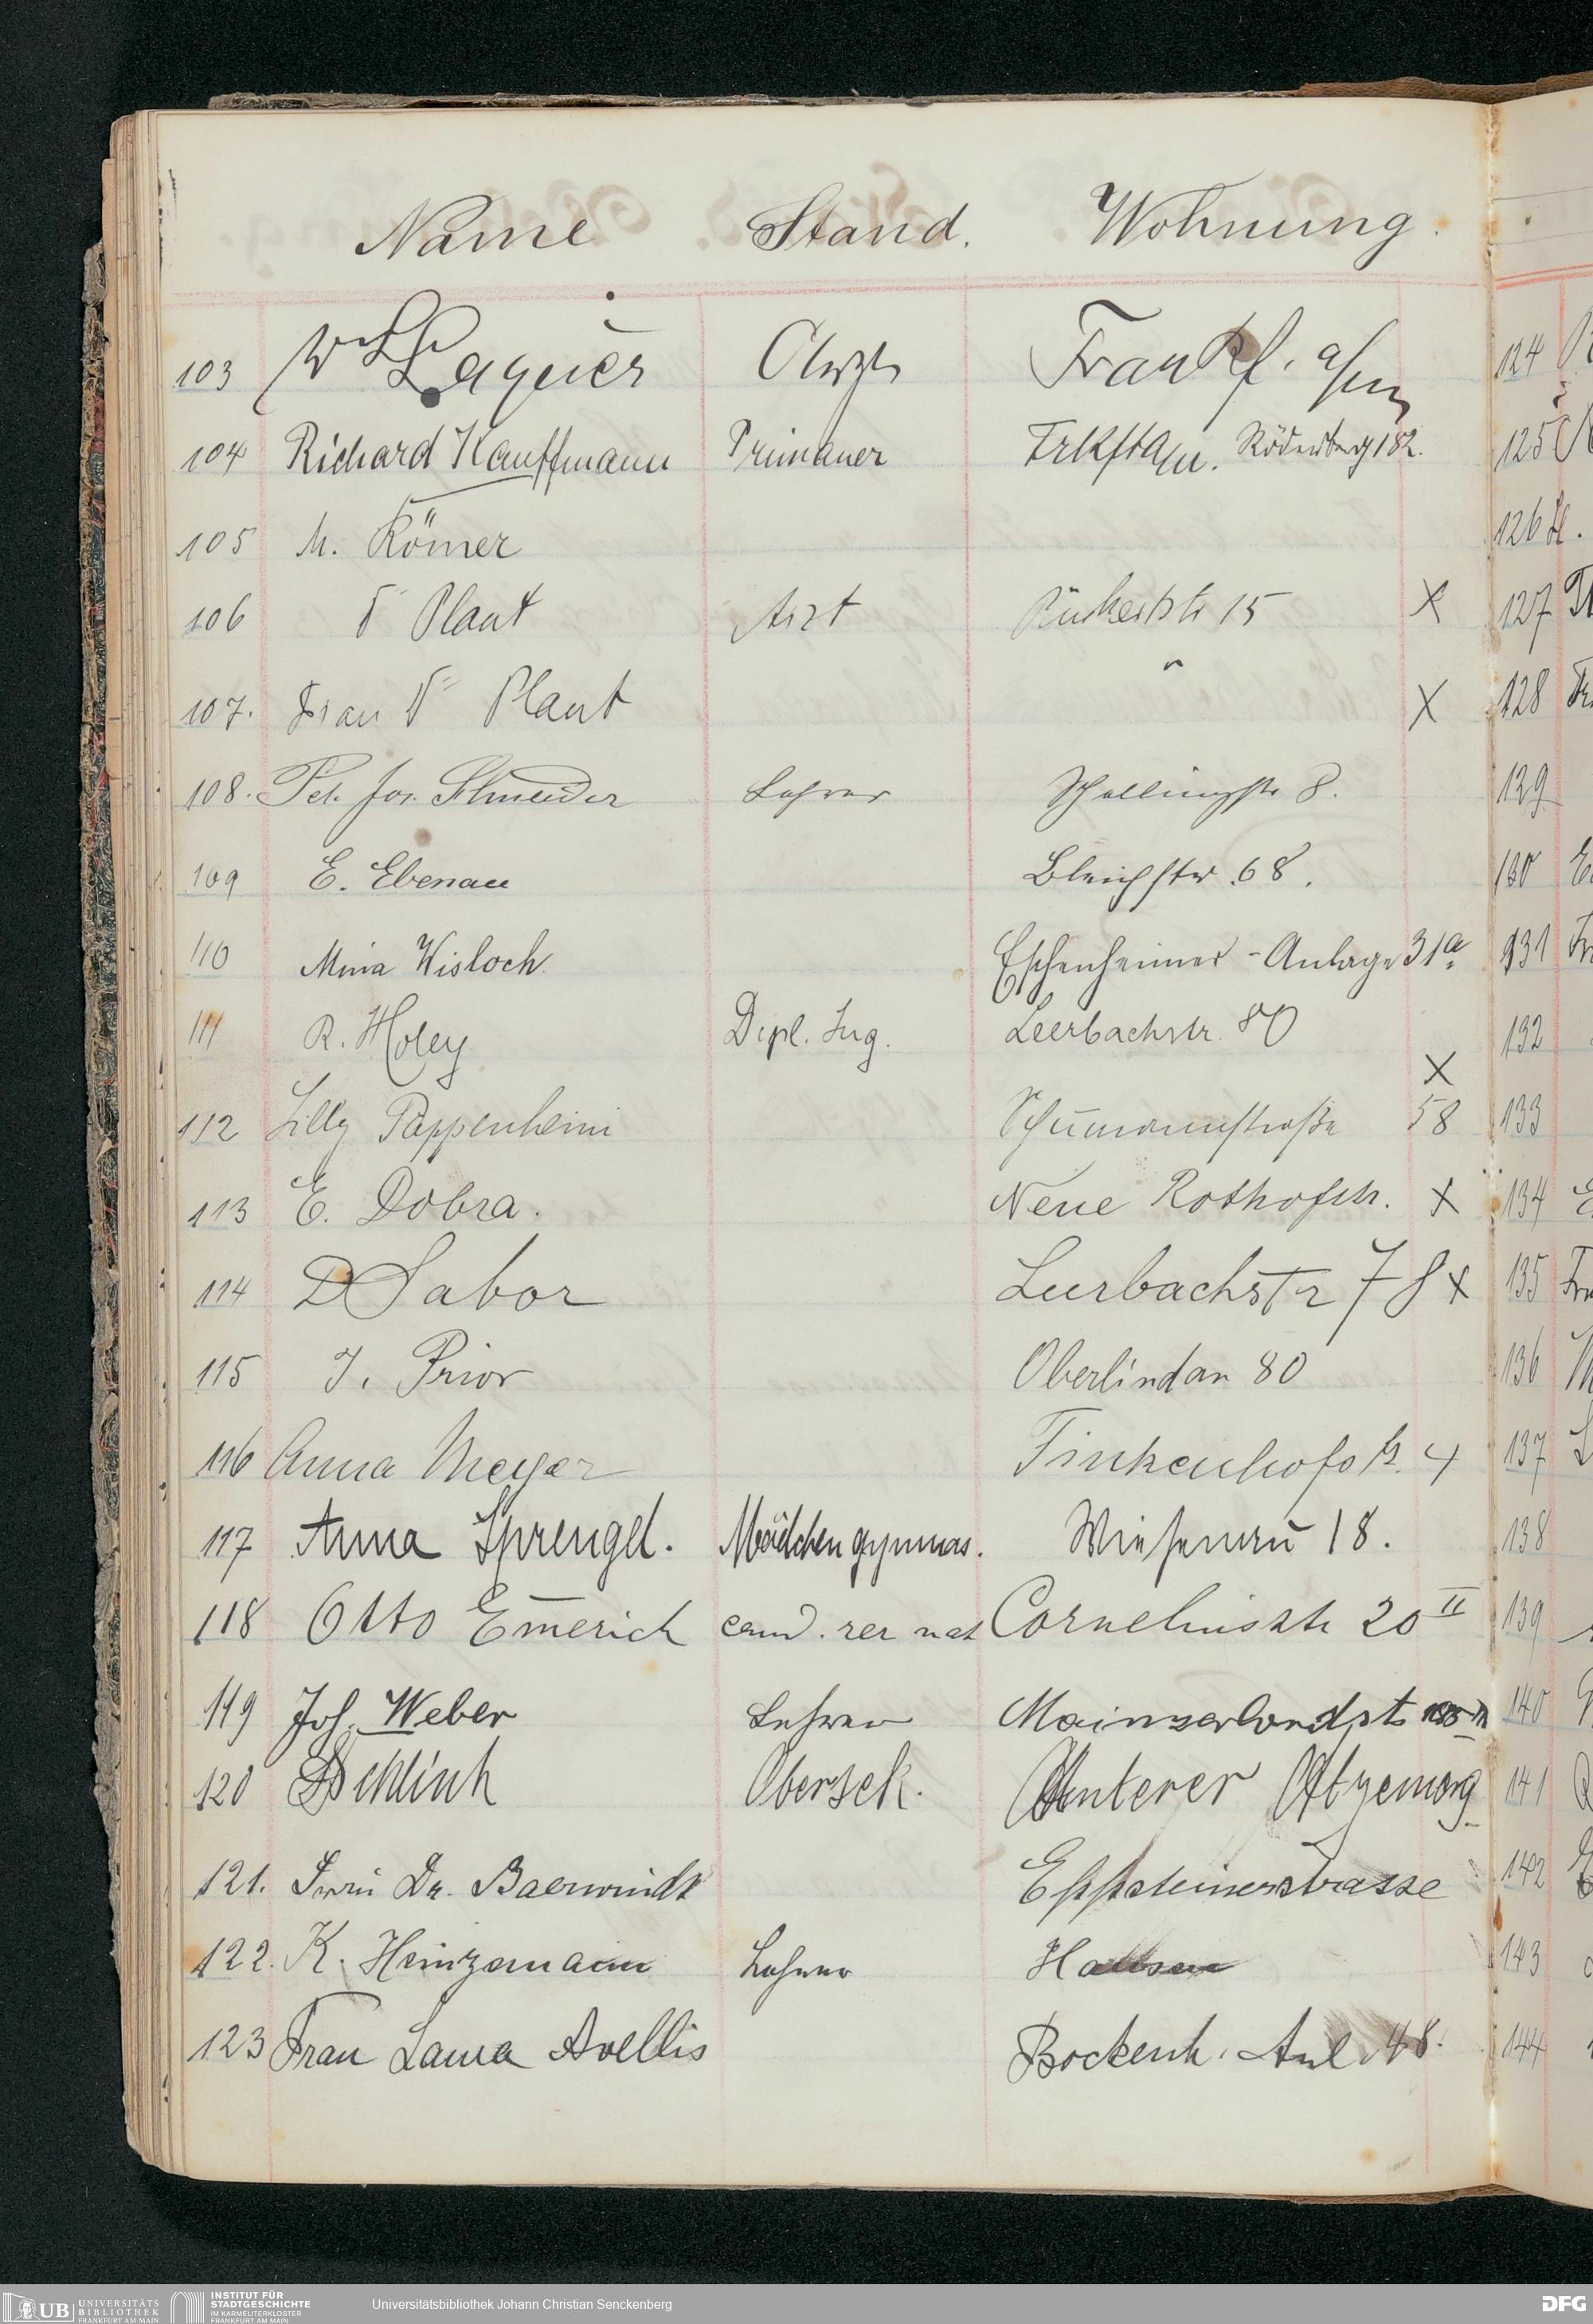 Name Stand. Wohnung.
103 Laquer Arzt Frankf. a/m
104 Richard Kauffmann Primaner Frkfta/M. Röderbergw 182.
105 M. Römer
106 Dr Plaut Arzt Rückertstr 15 X
107. Frau Dr Plaut " X
108. Pet. Jos. Lehrer Schellingstr 8.
109 E. Ebenau Bleichstr. 68.
110 Mina Wisloch Eschenheimer-Anlage 31a.
111 R. Holey Dipl. Ing. Leerbachstr. 80
X
112 Lilly Pappenheim Schumannstraße 58
113 E. Dobra. Neue Rothofstr. X
114 D Sabor Leerbachstr 78 X
115 J. Prior Oberlindau 80
116 Anna Meyer Finkenhofstr. 4
117 Anna Sprengel. Mädchengymnas. Wiesenau 18.
118 Otto Emerich cand. rer nat Corneliusstr 20 II
119 Joh. Weber Lehrer Mainzerlandst
120 Schlink Obersek. Unterer Atzemerg
121. Frau Dr. Baerwindt Eppsteinerstrasse
122. K. Hinzemann Lehrer Hausen
123 Frau Laura Avellis Bockenh. Anl 48.
124
125
126
127
128
129
130
131
132
133
134
135
136
137
138
139
140
141
142
143
144
UB UNIVERSITÄTS
BIBLIOTHEK
FRANKFURT AM MAIN
INSTITUT FÜR
STADTGESCHICHTE
IM KARMELITERKLOSTER
FRANKFURT AM MAIN
Universitätsbibliothek Johann Christian Senckenberg
DFG